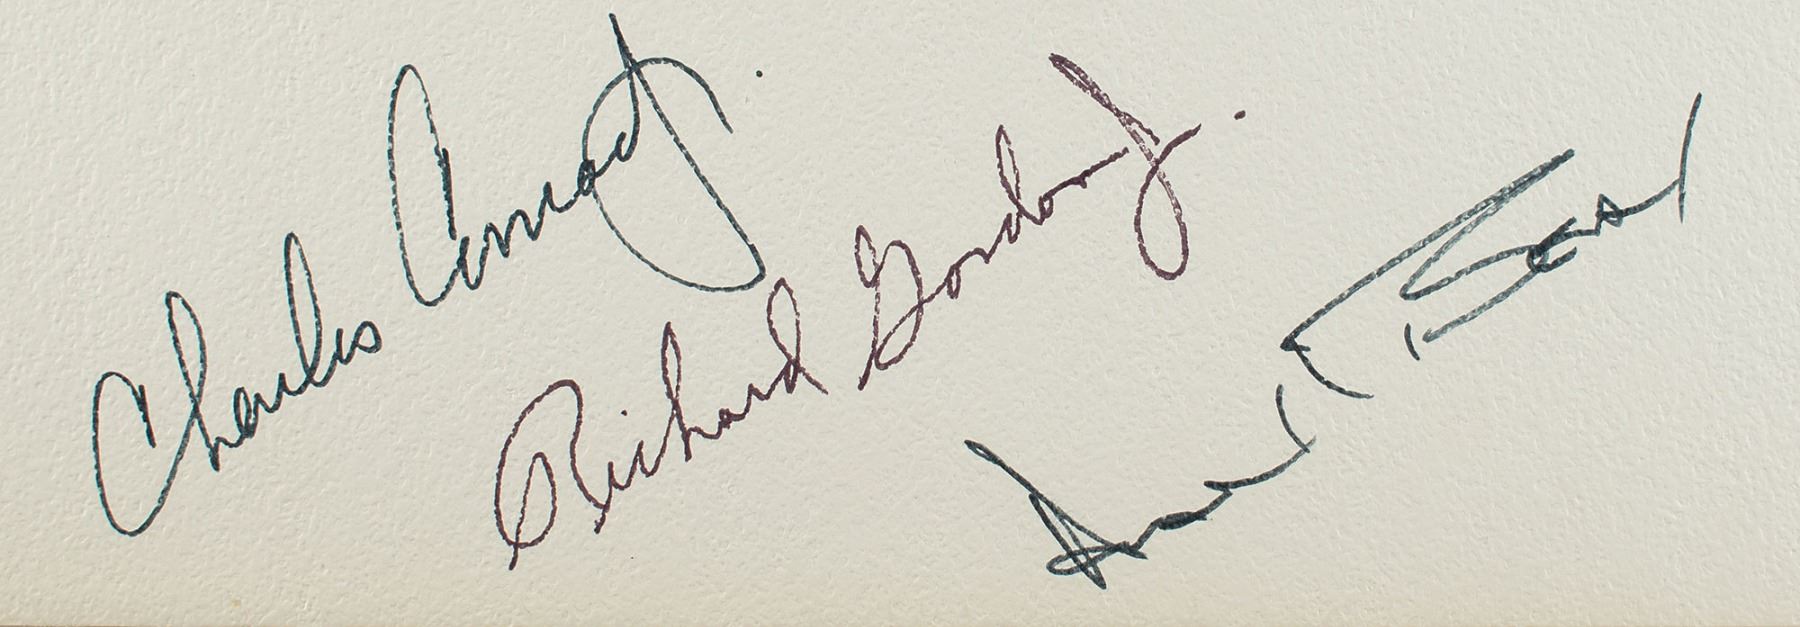 Charles Conrad Jr.
Richard Gordon Jr.
Alan L Bean